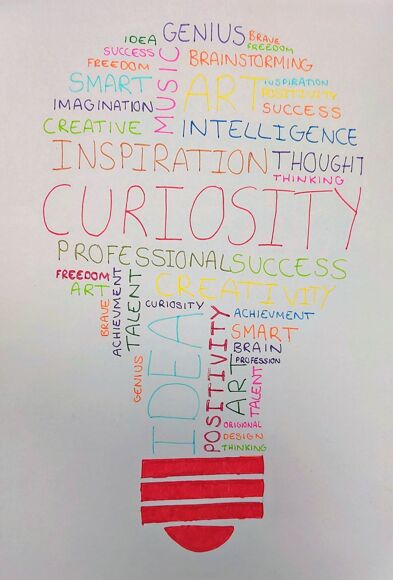 IDEA GENIUS BRAVE
SUCCESS FREEDOM
FREEDOM MUSIC BRAINSTORMING
SMART ART INSPIRATION
IMAGINATION POSITIVITY
SUCCESS
CREATIVE INTELLIGENCE
INSPIRATION THOUGHT
THINKING
CURIOSITY
PROFESSIONAL SUCCESS
FREEDOM ACHIEVMENT TALENT CREATIVITY
ART
BRAVE CURIOSITY ACHIEVMENT
IDEA POSITIVITY SMART
GENIUS ART BRAIN
PROFESSION
TALENT
ORIGIONAL
DESIGN
THINKING